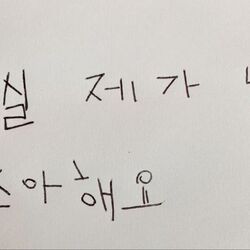 실 제가
아해요